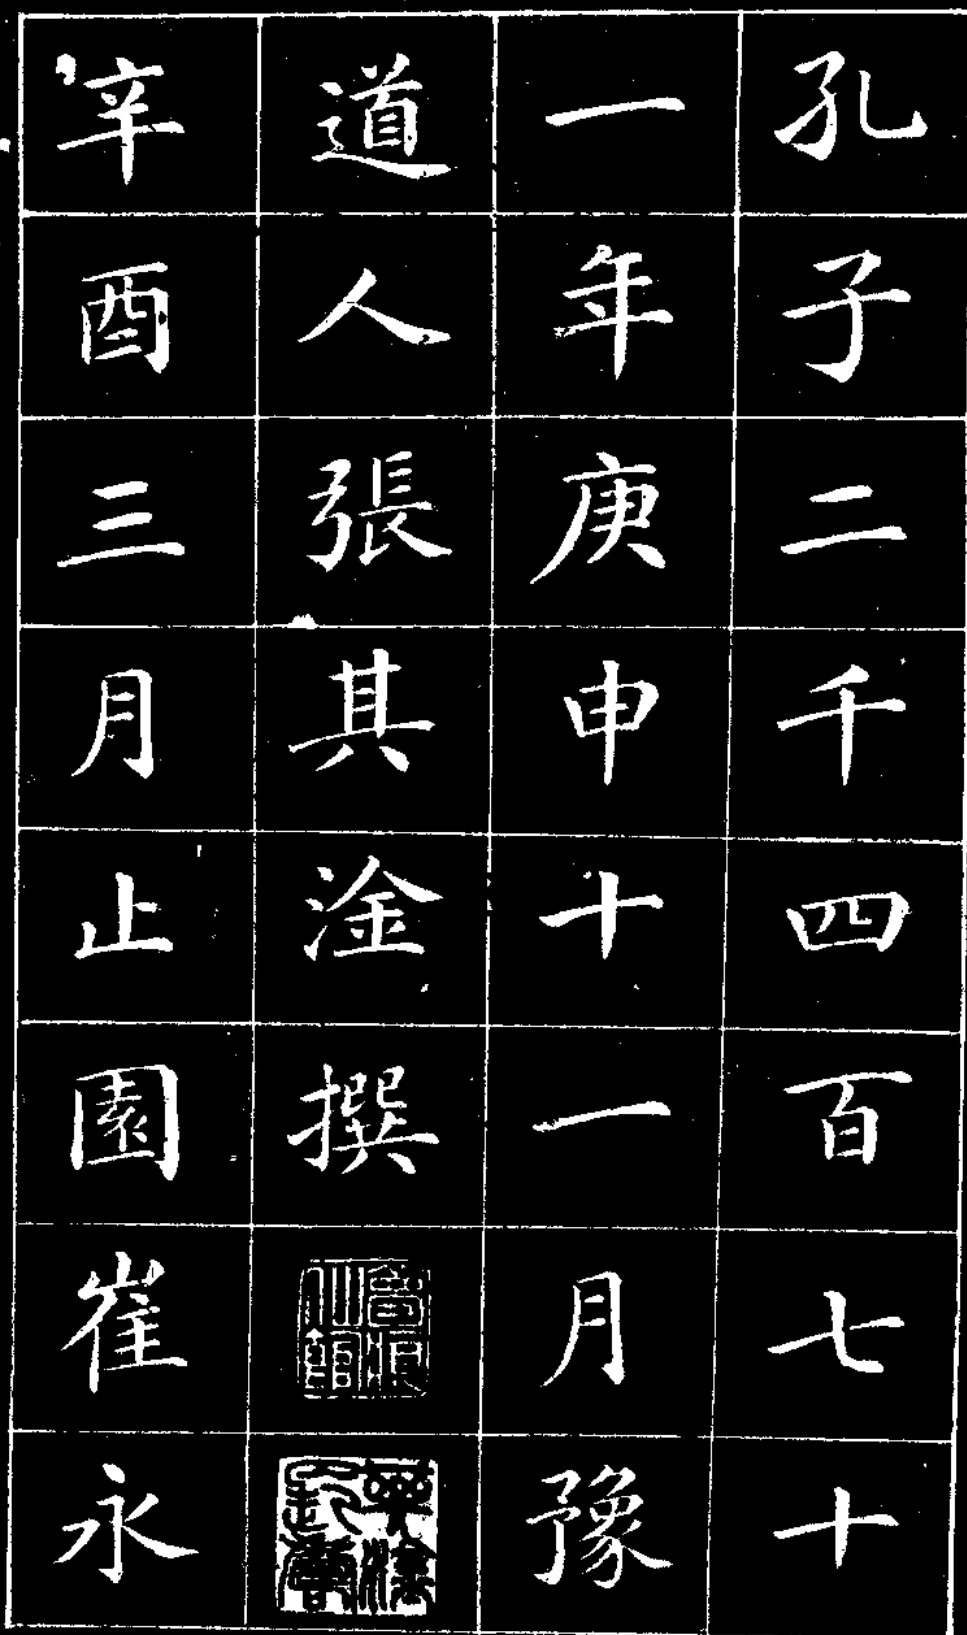 孔子二千四百七十
一年庚申十一月豫
道人張其淦撰
辛酉三月止園崔永